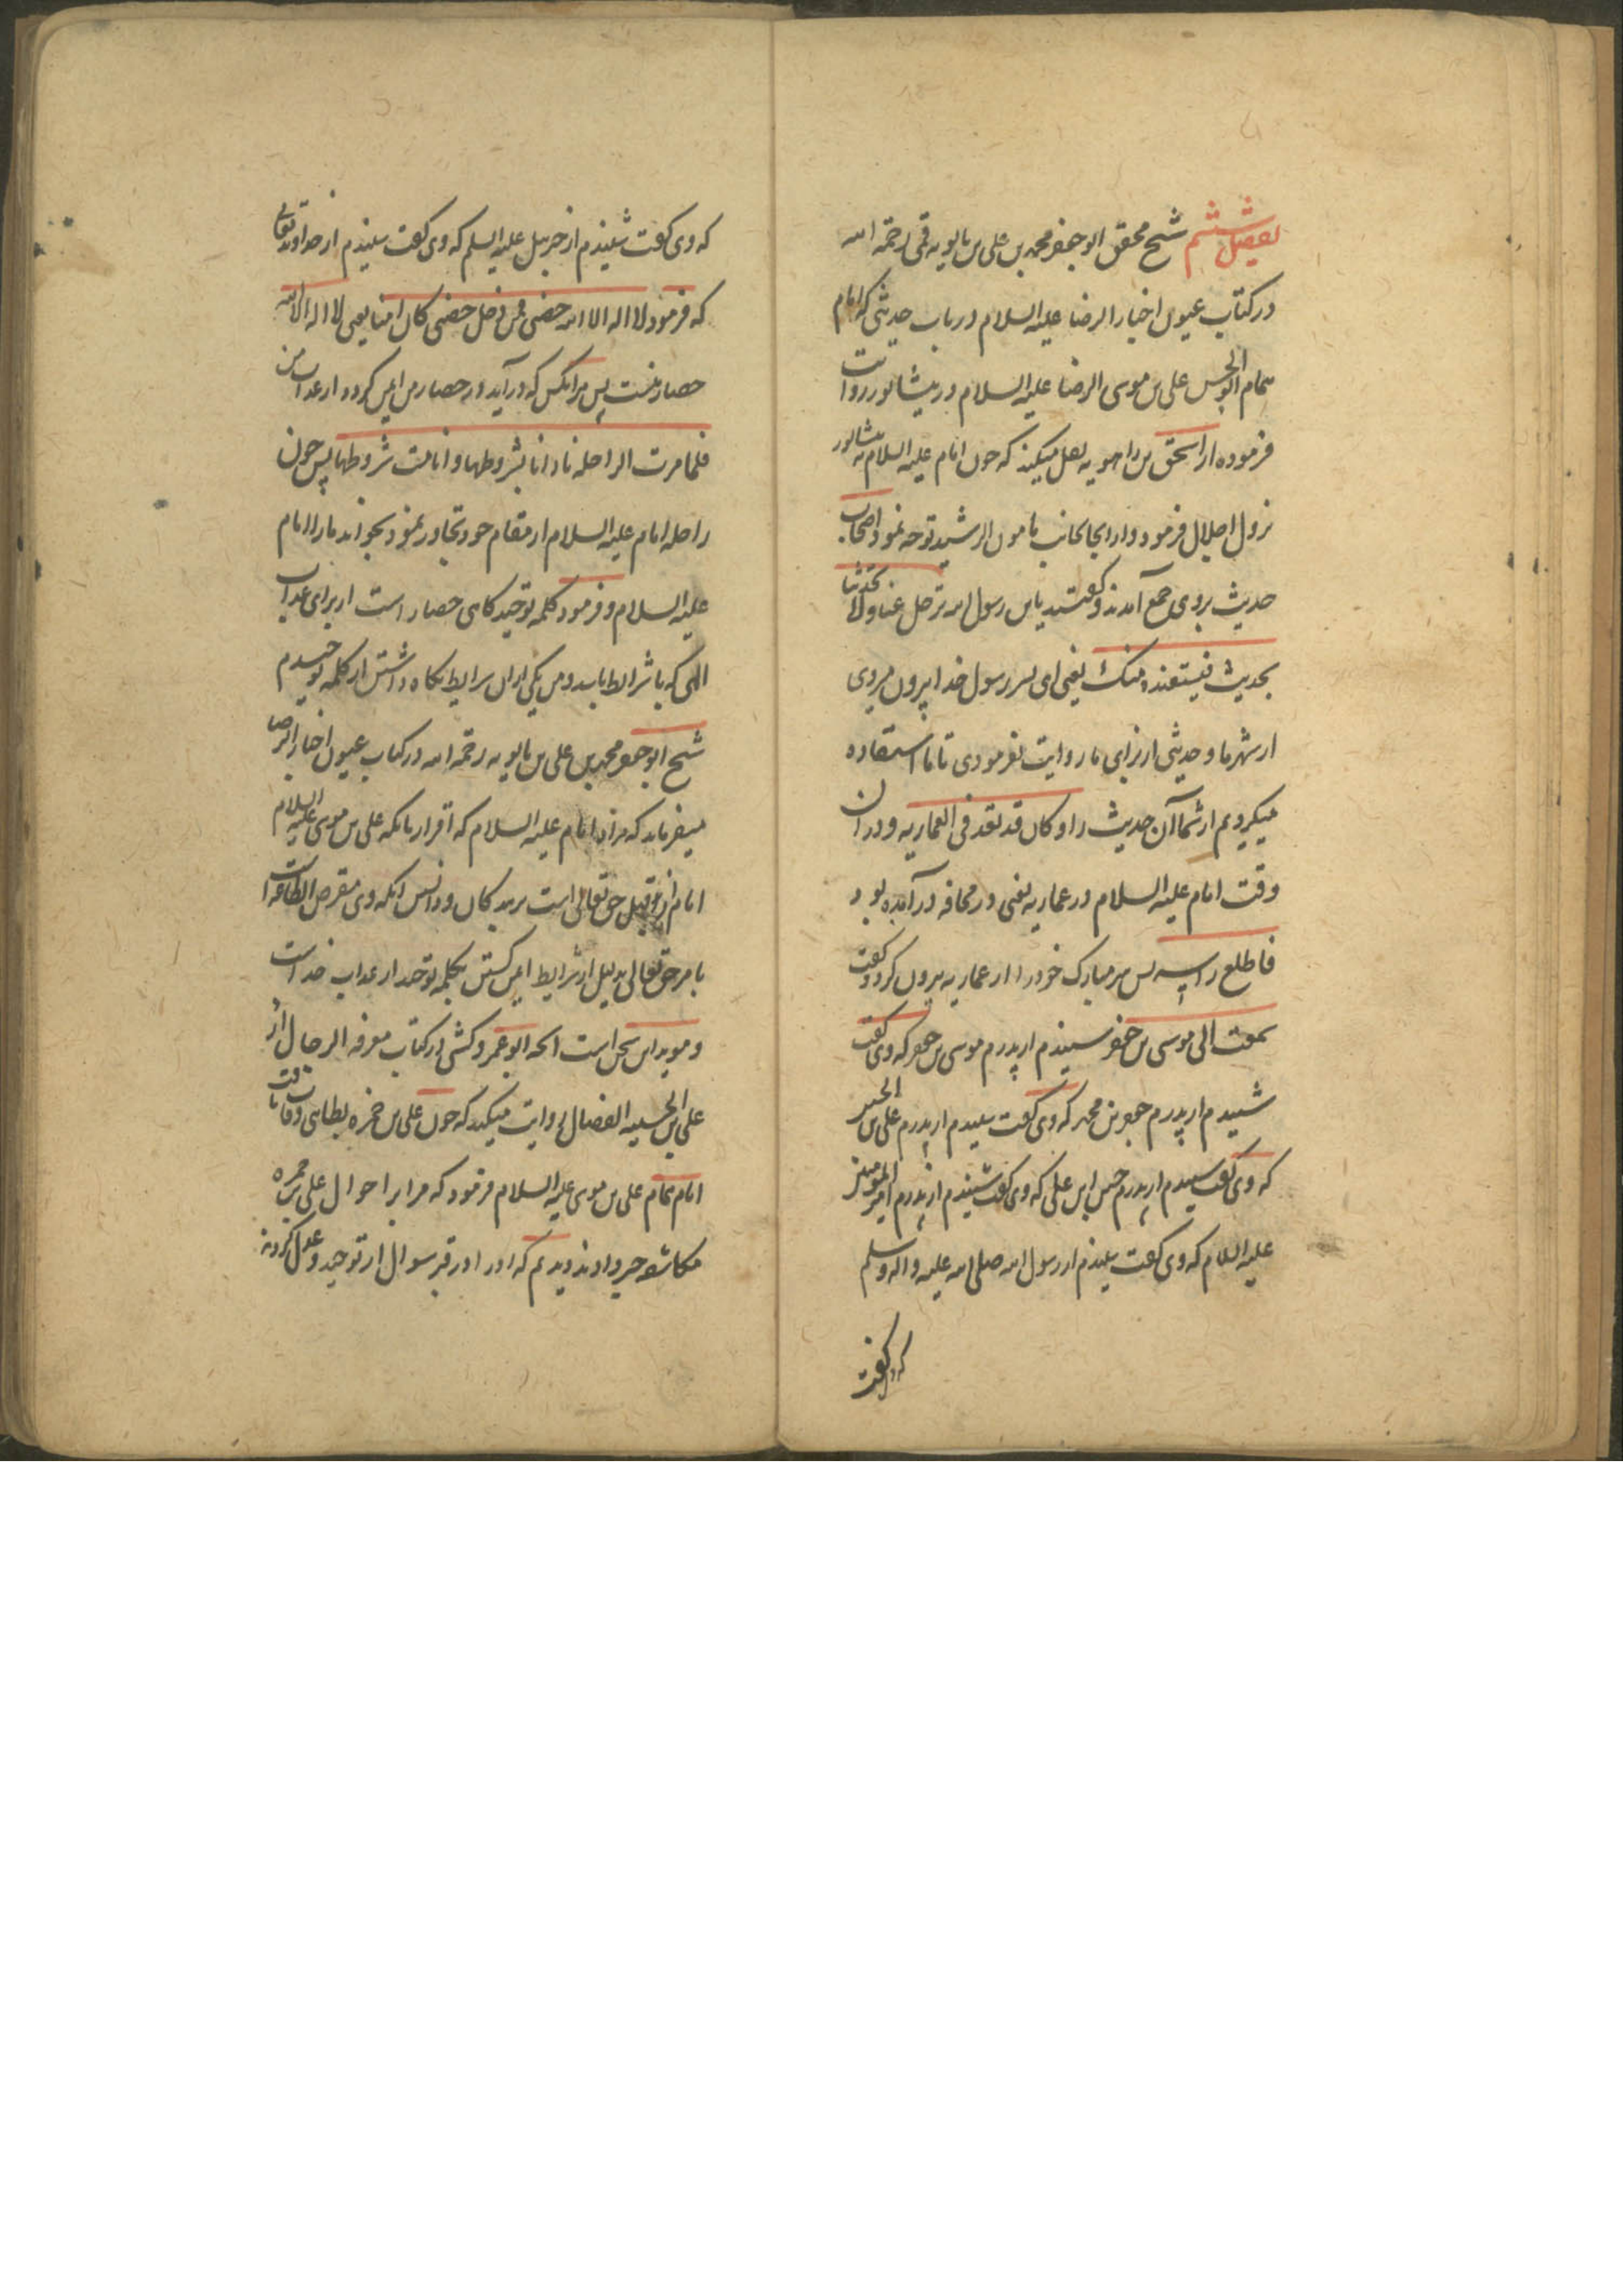 تفصیل ششم شیخ محقق ابو جعفر محمد بن علی بن بابویه قمی رحمه الله
در کتاب عیون اخبار الرضا علیه السلام در باب حدیثی که امام
همام ابو الحسن علی بن موسی الرضا علیه السلام در نیشابور روایت
فرموده از اسحق بن راهویه نقل میکند که چون امام علیه السلام به نیشابور
نزول اجلال فرمود و از آنجا بجانب مامون الرشید توجه نمود اصحاب
حدیث بروی جمع آمدند و گفتند یا بن رسول الله ترحل عنا و لا تحدثنا
بحدیث فنستفیده منک یعنی ای پسر رسول خدا بیرون میروی
از شهر ما و حدیثی از برای ما روایت نفرمودی تا ما استفاده
میکردیم از شما آن حدیث را و کان قد قعد فی العماریه و در آن
وقت امام علیه السلام در عماریه یعنی در محافه در آمده بود
فاطلع راسه پس سر مبارک خود را از عماریه بیرون کرد و گفت
سمعت ابی موسی بن جعفر شنیدم از پدرم موسی بن جعفر که وی گفت
شنیدم از پدرم جعفر بن محمد که وی گفت شنیدم از پدرم علی بن الحسین
که وی گفت شنیدم از پدرم حسین ابن علی که وی گفت شنیدم از پدرم امیر المومنین
علیه السلام که وی گفت شنیدم از رسول الله صلی الله علیه و اله و سلم
که وی گفت
که وی گفت شنیدم از جبرییل علیه السلم که وی گفت شنیدم از خداوند تعالی
که فرمود لا اله الا الله حصنی فمن دخل حصنی کان امنا یعنی لا اله الا الله
حصار منست پس هر آنکس که در آید در حصار من ایمن گردد از عذاب من
فلما مرت الراحله نادانا بشروطها و انا من شروطها پس چون
راحله امام علیه السلام از مقام خود تجاوز نمود بخواند ما را امام
علیه السلام و فرمود کلمه توحید گاهی حصار است از برای عذاب
الهی که با شرایط باشد و من یکی از آن شرایط نگاه داشتن از کلمه توحیدم
شیخ ابو جعفر محمد بن علی بن بابویه رحمه الله در کتاب عیون اخبار الرضا
میفرماید که مراد امام علیه السلام که اقرار بانکه علی بن موسی علیه السلام
امام از قبل حق تعالی است بر بندگان و دانستن انکه وی مفترض الطاعه است
بامر حق تعالی بدلیل از شرایط ایمن گشتن بکلمه توحید از عذاب خداست
و موید این سخن است آنچه ابو عمرو کشی در کتاب معرفه الرجال از
علی بن الحسین الفضال روایت میکند که چون علی بن حمزه بطاینی وفات یافت
امام همام علی بن موسی علیه السلام فرمود که مرا بر احوال علی بن حمزه
مکاشفه دادند دیدم که او را در قبر سوال از توحید و عدل کردند